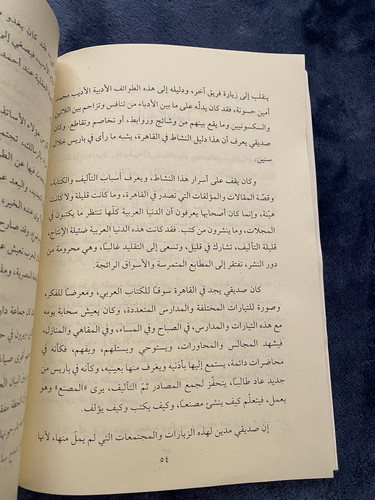 ينقلب إلى زيارة فريق آخر، ودليله إلى هذه الطوائف الأدبية الأديب محمد
أمين حسونة، فقد كان يدلّه على ما بين الأدباء من تنافس وتزاحم بين اللاتينيين
والسكسونيين وما يقع بينهم من وشائج وروابط، أو تخاصم وتقاطع. وكان
صديقي يعرف أن هذا دليل النشاط في القاهرة، يشبه ما رأى في باريس خلال
سنين.
وكان يقف على أسرار هذا النشاط، ويعرف أسباب التأليف والكتابة،
وقصّة المقالات والمؤلفات التي تصدر في القاهرة، وما كانت قليلة ولا كانت
هيّنة، وإنما كان أصحابها يعرفون أن الدنيا العربية كلّها تنتظر ما يكتبون في
المجلات، وما ينشرون من كتب. فقد كانت هذه الدنيا العربية ضئيلة الإنتاج،
قليلة التأليف، تشارك في قليل، وتسعى إلى التقليد غالبًا، وهي محرومة من
دور النشر، تفتقر إلى المطابع المتمرسة والأسواق الرائجة.
كان صديقي يجد في القاهرة سوقًا للكتاب العربي، ومعرضًا للفكر،
وصورة للتيارات المختلفة والمدارس المتعددة، وكان يعيش سحابة يومه
مع هذه التيارات والمدارس، في الصباح وفي المساء، وفي المقاهي والمنازل،
فيشهد المجالس والمحاورات، ويستوحي ويستلهم، ويفهم، فكأنه في
محاضرات دائمة، يستمع إليها بأذنيه ويغرف منها بعينيه، وكأنه في باريس من
جديد عاد طالبًا، يتحفّز لجمع المصادر ثمّ التأليف، يرى «المصنع» وهو
يعمل، فيتعلّم كيف ينشئ مصنعًا، وكيف يكتب وكيف يؤلف.
إن صديقي مدين لهذه الزيارات والمجتمعات التي لم يملّ منها، لأنها
٥٤